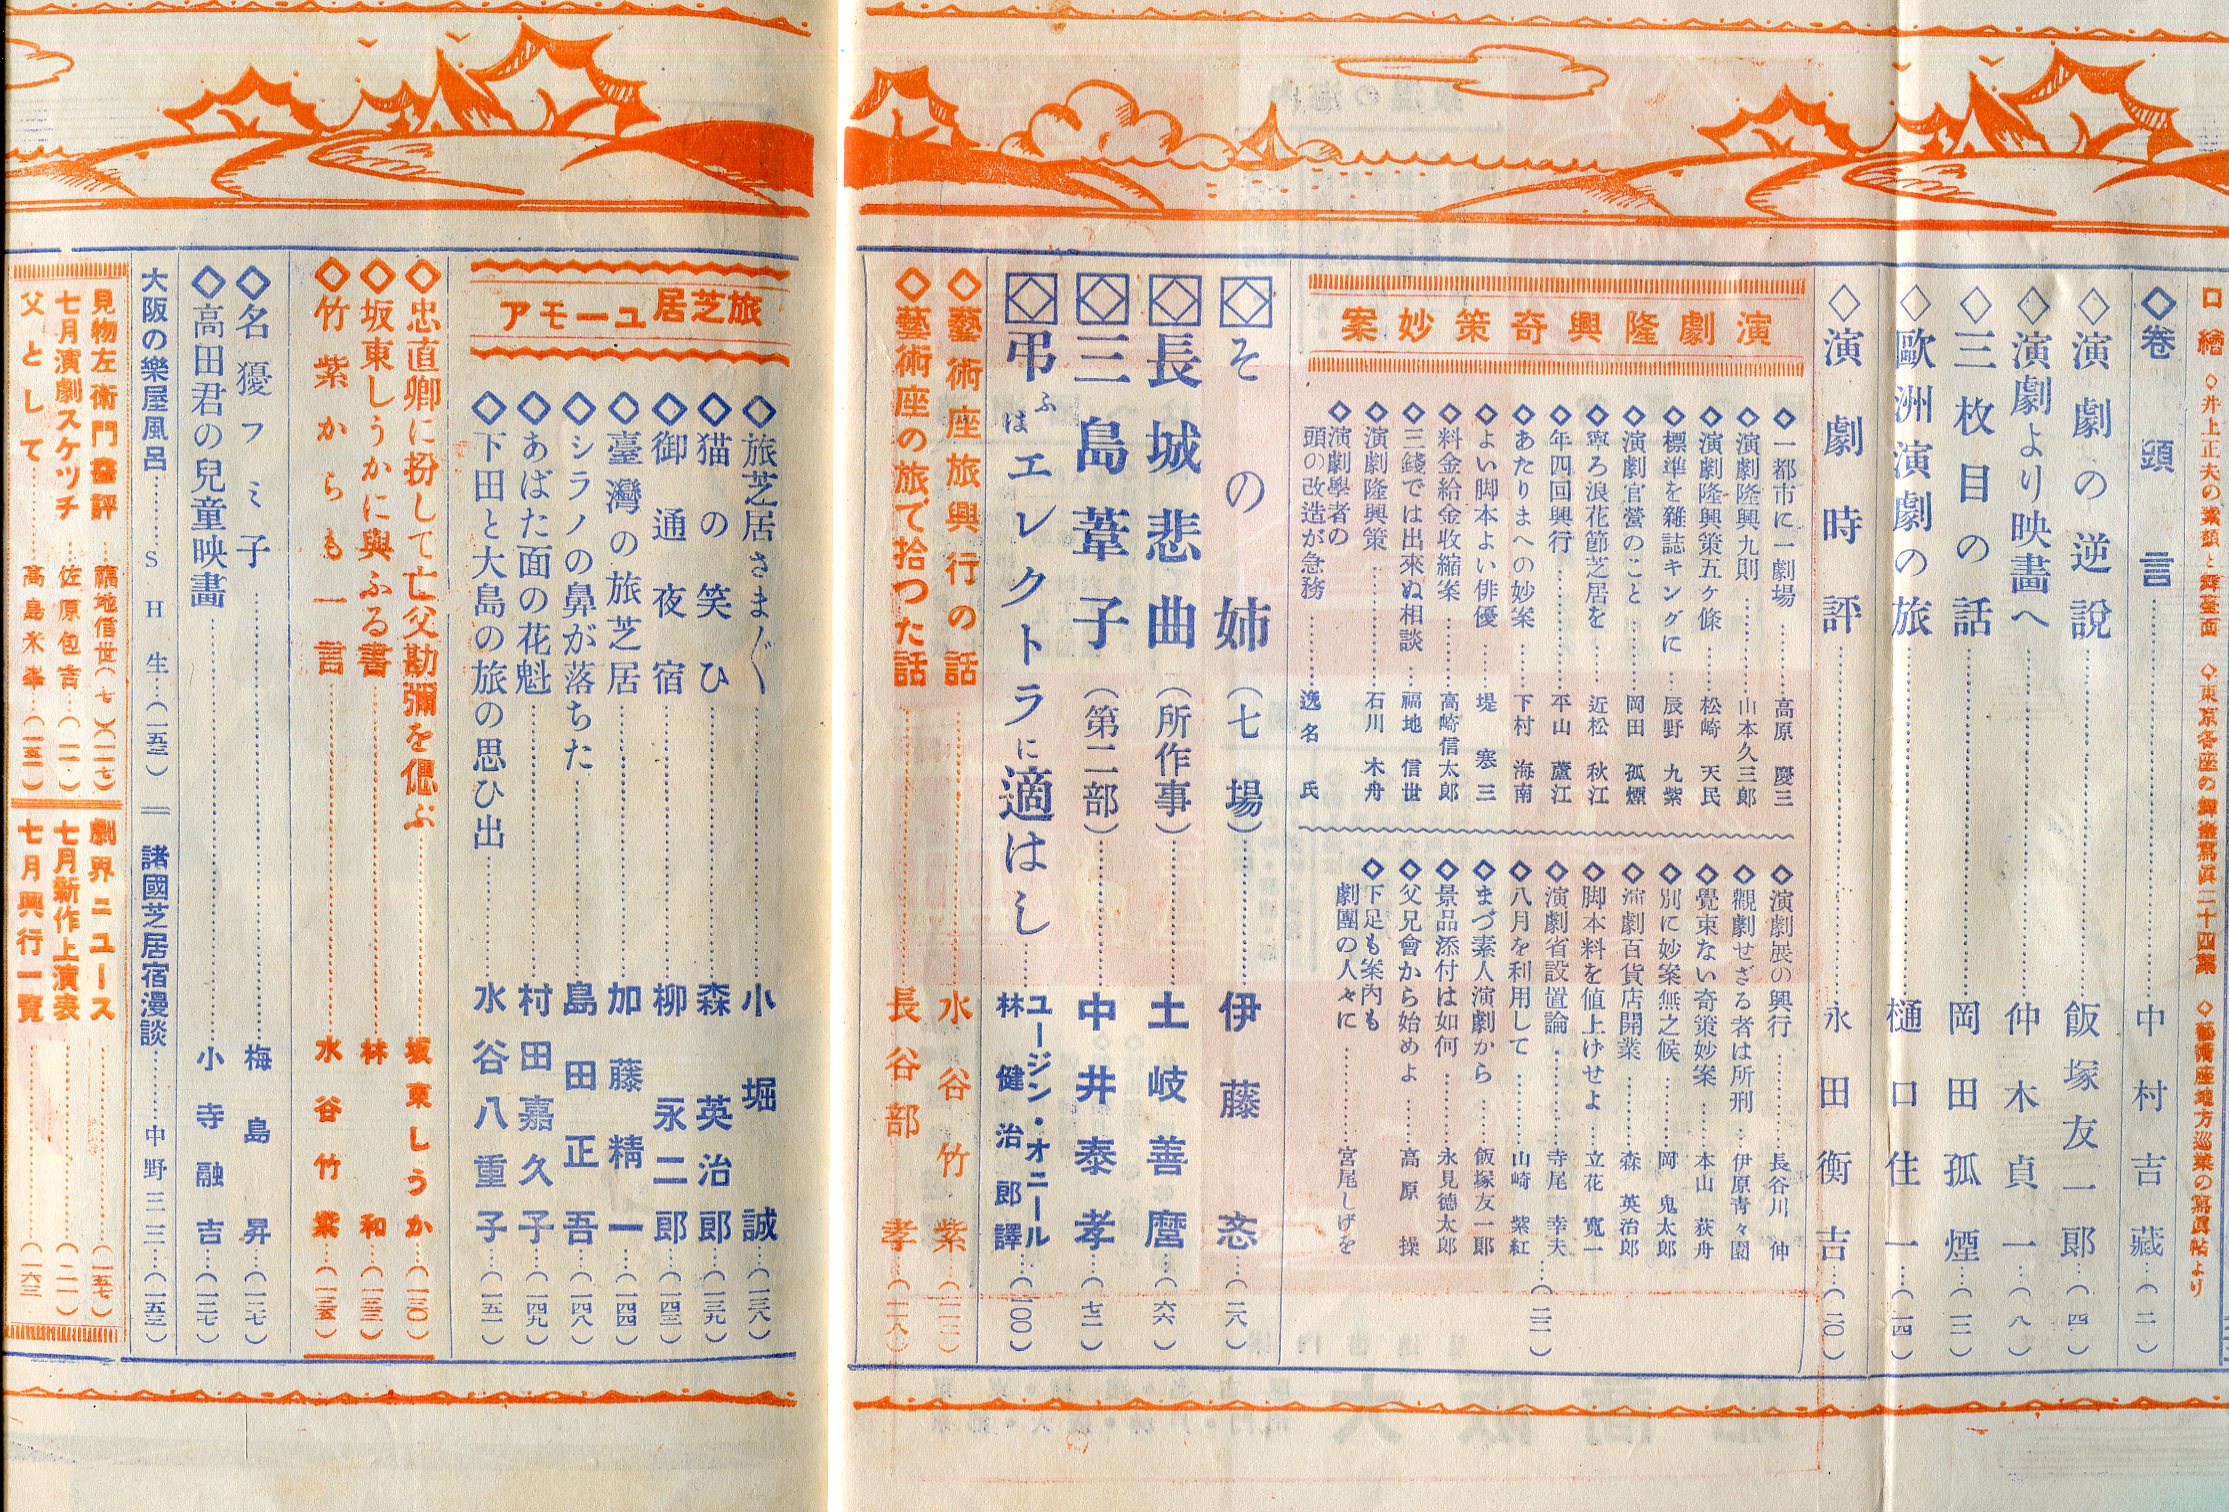 口繪 ◇井上正夫の素顔と舞臺面 ◇東京各座の舞臺寫眞二十四葉 ◇藝術座地方巡業の寫眞帖より
◇卷頭言…中村吉藏…(一)
◇演劇の逆說…飯塚友一郎…(四)
◇演劇より映畫へ…仲木貞一…(八)
◇三枚目の話…岡田孤煙…(一二)
◇歐洲演劇の旅…樋口住一…(一四)
◇演劇時評…永田衡吉…(二〇)
演劇隆興奇策妙案
◇一都市に一劇場…高原慶三
◇演劇隆興九則…山本久三郎
◇演劇隆興策五ケ條…松崎天民
◇標準を雜誌キングに…辰野九紫
◇演劇官營のこと…岡田孤煙
◇寧ろ浪花節芝居を…近松秋江
◇年四回興行…平山蘆江
◇あたりまへの妙案…下村海南
◇よい脚本よい俳優…堤寒三
◇料金給金收縮案…高崎信太郎
◇三錢では出來ぬ相談…福地信世
◇演劇隆興策…石川木舟
演劇學者の
頭の改造が急務…逸名氏
◇演劇展の興行…長谷川伸
◇觀劇せざる者は所刑…伊原靑々園
◇覺束ない奇策妙案…本山荻舟
◇別に妙案無之候…岡鬼太郎
◇演劇百貨店開業…森英治郎
◇脚本料を値上げせよ…立花寬一
◇演劇省設置論…寺尾幸夫
◇八月を利用して…山崎紫紅
◇まづ素人演劇から…飯塚友一郎
◇景品添付は如何…永見德太郎
◇父兄會から始めよ…高原操
◇下足も案內も
劇團の人々に…宮尾しげを
…(二二)
◇その姉(七場)…伊藤恣…(二八)
◇長城悲曲(所作事)…土岐善麿…(六六)
◇三島葦子(第二部)…中井泰孝…(七二)
◇弔ふはエレクトラに適はし…ユージン・オニール 林健治郎譯…(一〇〇)
◇藝術座旅興行の話…水谷竹紫…(一二二)
◇藝術座の旅で拾つた話…長谷部孝…(一二八)
旅芝居ユーモア
◇旅芝居さま〴〵…小堀誠…(一三八)
◇猫の笑ひ…森英治郎…(一三九)
◇御通夜宿…柳永二郎…(一四三)
◇臺灣の旅芝居…加藤精一…(一四四)
◇シラノの鼻が落ちた…島田正吾…(一四八)
◇あばた面の花魁…村田嘉久子…(一四九)
◇下田と大島の旅の思ひ出…水谷八重子…(一五一)
◇忠直卿に扮して亡父勘彌を偲ぶ…坂東しうか…(一三〇)
◇坂東しうかに與ふる書…林和…(一三三)
◇竹紫からも一言…水谷竹紫…(一三五)
◇名優フミ子…梅島昇…(一二七)
◇高田君の兒童映畫…小寺融吉…(一二七)
大阪の樂屋風呂…SH生…(一五三)=諸國芝居宿漫談…中野三二三…(一五三)
見物左衛門畫評…福地信世(一七)(一二七)
七月演劇スケツチ…佐原包吉…(一一)
父として…高島米峯…(一五一)
劇界ニユース…(一五七)
七月新作上演表…(二一)
七月興行一覽…(一六三)